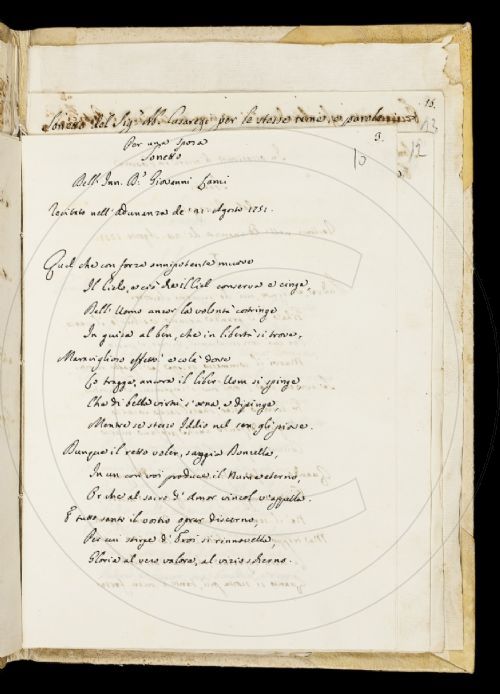 15.
Sonetto del Sig.r Ab. Casaregi per le stesse rime, e parole
3.
13
12
10
Per una Sposa
Sonetto
Dell' Inn. B.r Giovanni Lami
Recitato nell' Adunanza de' 21. Agosto 1751.
Quel che con forza onnipotente muove
Il Cielo, e ciò che il Ciel conserva e cinge,
Dell' Uomo ancor la volontà costringe
In guisa al ben, che in libertà si trova.
Maraviglioso effetto! e colà dove
Lo tragge, ancora il liber Uom si spinge
Che di bella virtù s' orna, e dipinge,
Mentre se stesso Iddio nel sen gli piove.
Dunque il retto voler, saggia Donzella,
In un con voi produce il Nume eterno,
Or che al sacro d' Amor vincol v' appella.
E tutto santo il vostro oprar discerno,
Per cui stirpe d' Eroi si rinnovella,
Gloria al vero valore, al vizio scherno.